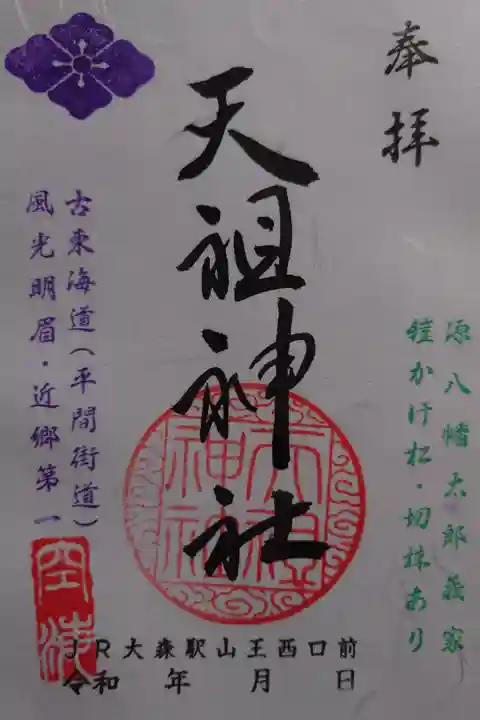 奉拝
源八幡太郎義家
鎧かけ松・切株あり
天祖神社
古東海道（平間街道）
風光明眉・近郷第一
JR大森駅山王西口前
令和　年　月　日